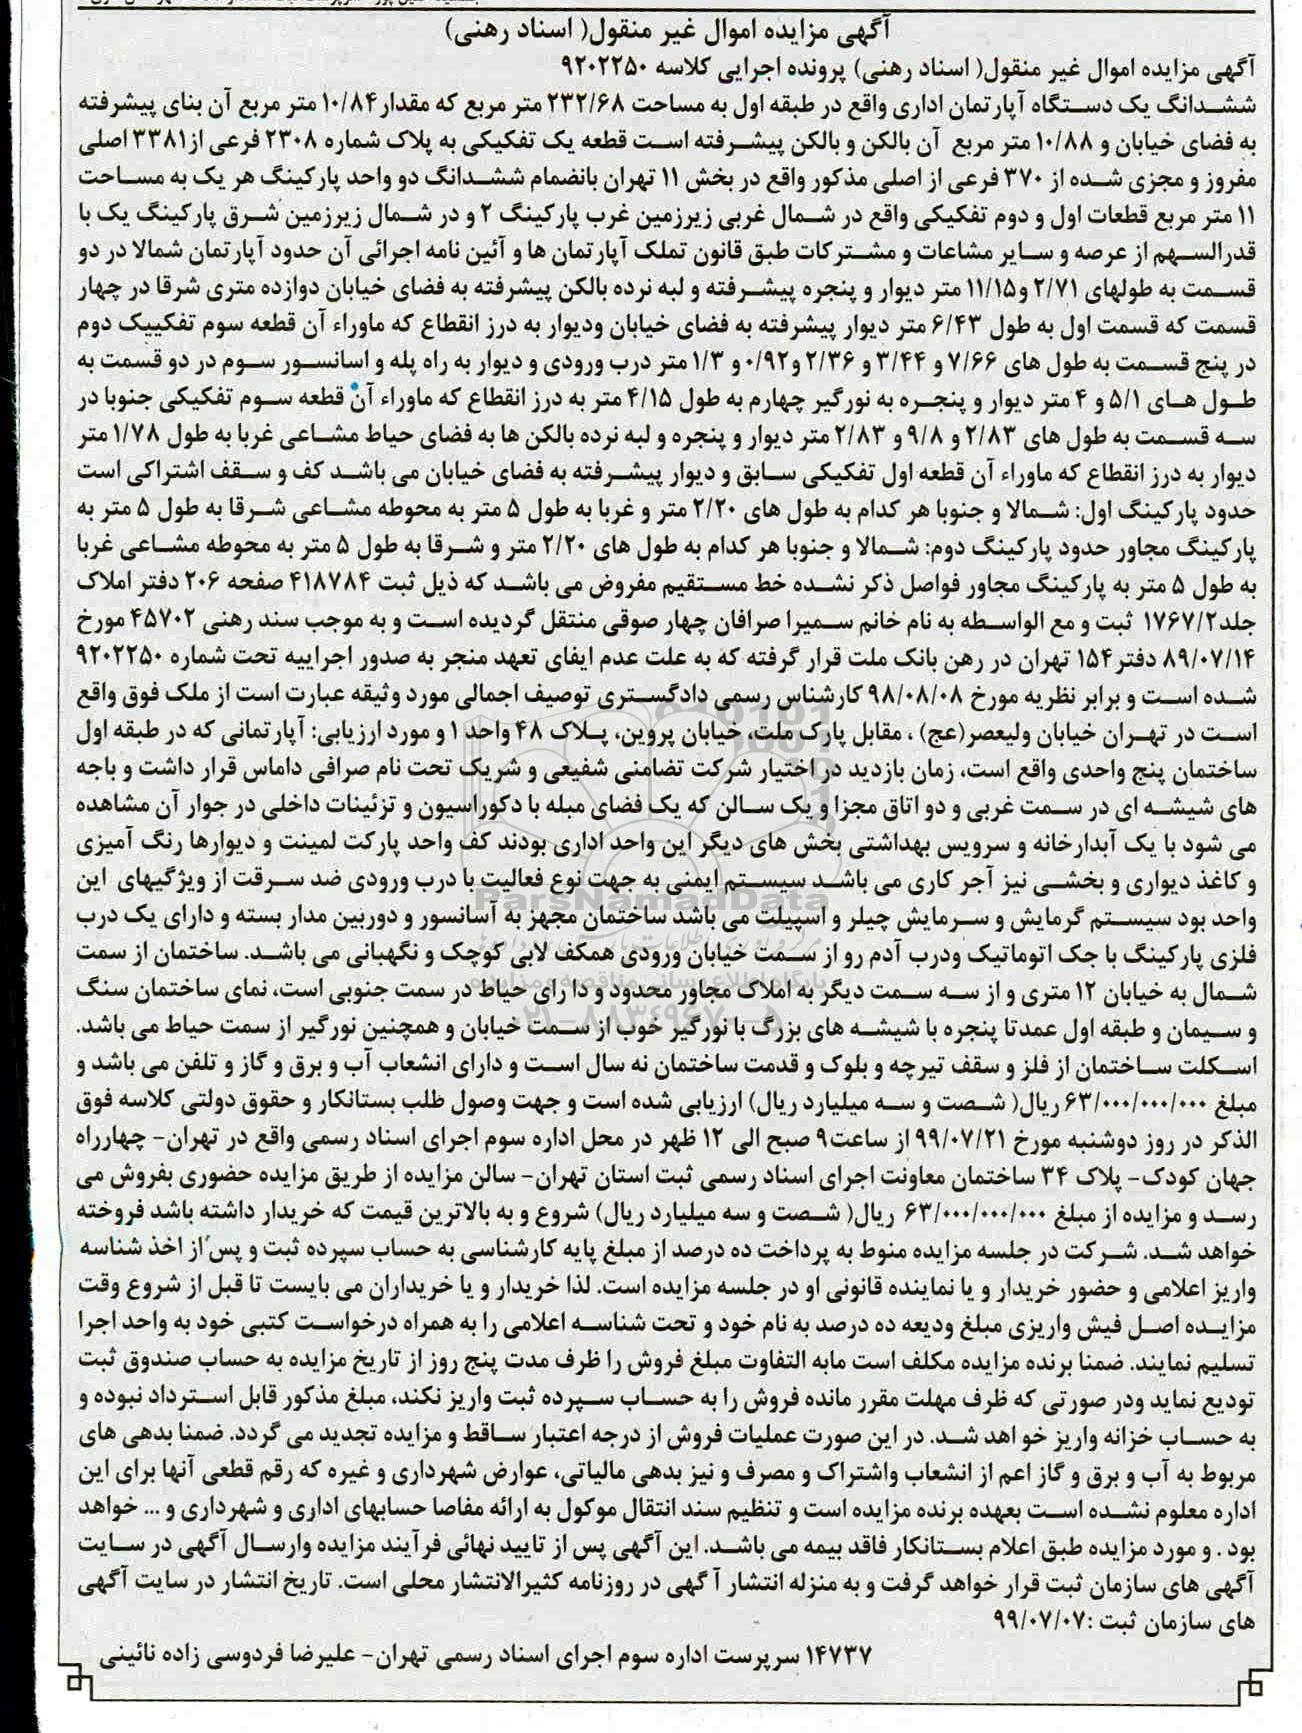 آگهی مزایده اموال غیر منقول( اسناد رهنی)
آگهی مزایده اموال غیر منقول( اسناد رهنی) پرونده اجرایی کلاسه ۹۲۰۲۲۵۰
ششدانگ یک دستگاه آپارتمان اداری واقع در طبقه اول به مساحت ۲۳۲/۶۸ متر مربع که مقدار۱۰/۸۴ متر مربع آن بنای پیشرفته
به فضای خیابان و ۱۰/۸۸ متر مربع آن بالکن و بالکن پیشرفته است قطعه یک تفکیکی به پلاک شماره ۲۳۰۸ فرعی از۳۳۸۱ اصلی
مفروز و مجزی شده از ۳۷۰ فرعی از اصلی مذکور واقع در بخش ۱۱ تهران بانضمام ششدانگ دو واحد پارکینگ هر یک به مساحت
۱۱ متر مربع قطعات اول و دوم تفکیکی واقع در شمال غربی زیرزمین غرب پارکینگ ۲ و در شمال زیرزمین شرق پارکینگ یک با
قدرالسهم از عرصه و سایر مشاعات و مشترکات طبق قانون تملک آپارتمان ها و آئین نامه اجرائی آن حدود آپارتمان شمالا در دو
قسمت به طولهای ۲/۷۱ و۱۱/۱۵ متر دیوار و پنجره پیشرفته و لبه نرده بالکن پیشرفته به فضای خیابان دوازده متری شرقا در چهار
قسمت که قسمت اول به طول ۶/۴۳ متر دیوار پیشرفته به فضای خیابان ودیوار به درز انقطاع که ماوراء آن قطعه سوم تفکییک دوم
در پنج قسمت به طول های ۷/۶۶ و ۳/۴۴ و ۲/۳۶ و۰/۹۲ و ۱/۳ متر درب ورودی و دیوار به راه پله و اسانسور سوم در دو قسمت به
طول های ۵/۱ و ۴ متر دیوار و پنجره به نورگیر چهارم به طول ۴/۱۵ متر به درز انقطاع که ماوراء آن قطعه سوم تفکیکی جنوبا در
سه قسمت به طول های ۲/۸۳ و ۹/۸ و ۲/۸۳ متر دیوار و پنجره و لبه نرده بالکن ها به فضای حیاط مشاعی غربا به طول ۱/۷۸ متر
دیوار به درز انقطاع که ماوراء آن قطعه اول تفکیکی سابق و دیوار پیشرفته به فضای خیابان می باشد کف و سقف اشتراکی است
حدود پارکینگ اول: شمالا و جنوبا هر کدام به طول های ۲/۲۰ متر و غربا به طول ۵ متر به محوطه مشاعی شرقا به طول ۵ متر به
پارکینگ مجاور حدود پارکینگ دوم: شمالا و جنوبا هر کدام به طول های ۲/۲۰ متر و شرقا به طول ۵ متر به محوطه مشاعی غربا
به طول ۵ متر به پارکینگ مجاور فواصل ذکر نشده خط مستقیم مفروض می باشد که ذیل ثبت ۴۱۸۷۸۴ صفحه ۲۰۶ دفتر املاک
جلد۱۷۶۷/۲ ثبت و مع الواسطه به نام خانم سمیرا صرافان چهار صوقی منتقل گردیده است و به موجب سند رهنی ۴۵۷۰۲ مورخ
۸۹/۰۷/۱۴ دفتر ۱۵۴ تهران در رهن بانک ملت قرار گرفته که به علت عدم ایفای تعهد منجر به صدور اجراییه تحت شماره ۹۲۰۲۲۵۰
شده است و برابر نظریه مورخ ۹۸/۰۸/۰۸ کارشناس رسمی دادگستری توصیف اجمالی مورد وثیقه عبارت است از ملک فوق واقع
است در تهران خیابان ولیعصر(عج) ، مقابل پارک ملت، خیابان پروین، پلاک ۴۸ واحد ۱ و مورد ارزیابی: آپارتمانی که در طبقه اول
ساختمان پنج واحدی واقع است، زمان بازدید در اختیار شرکت تضامنی شفیعی و شریک تحت نام صرافی داماس قرار داشت و باجه
های شیشه ای در سمت غربی و دو اتاق مجزا و یک سالن که یک فضای مبله با دکوراسیون و تزئینات داخلی در جوار آن مشاهده
می شود با یک آبدارخانه و سرویس بهداشتی بخش های دیگر این واحد اداری بودند کف واحد پارکت لمینت و دیوارها رنگ آمیزی
و کاغذ دیواری و بخشی نیز آجر کاری می باشد سیستم ایمنی به جهت نوع فعالیت با درب ورودی ضد سرقت از ویژگیهای این
واحد بود سیستم گرمایش و سرمایش چیلر و اسپیلت می باشد ساختمان مجهز به آسانسور و دوربین مدار بسته و دارای یک درب
فلزی پارکینگ با جک اتوماتیک ودرب آدم رو از سمت خیابان ورودی همکف لابی کوچک و نگهبانی می باشد. ساختمان از سمت
شمال به خیابان ۱۲ متری و از سه سمت دیگر به املاک مجاور محدود و دا رای حیاط در سمت جنوبی است، نمای ساختمان سنگ
و سیمان و طبقه اول عمدتا پنجره با شیشه های بزرگ با نورگیر خوب از سمت خیابان و همچنین نورگیر از سمت حیاط می باشد.
اسکلت ساختمان از فلز و سقف تیرچه و بلوک و قدمت ساختمان نه سال است و دارای انشعاب آب و برق و گاز و تلفن می باشد و
مبلغ ۶۳/۰۰۰/۰۰۰/۰۰۰ ریال( شصت و سه میلیارد ریال) ارزیابی شده است و جهت وصول طلب بستانکار و حقوق دولتی کلاسه فوق
الذکر در روز دوشنبه مورخ ۹۹/۰۷/۲۱ از ساعت۹ صبح الی ۱۲ ظهر در محل اداره سوم اجرای اسناد رسمی واقع در تهران- چهارراه
جهان کودک- پلاک ۳۴ ساختمان معاونت اجرای اسناد رسمی ثبت استان تهران- سالن مزایده از طریق مزایده حضوری بفروش می
رسد و مزایده از مبلغ ۶۳/۰۰۰/۰۰۰/۰۰۰ ریال( شصت و سه میلیارد ریال) شروع و به بالاترین قیمت که خریدار داشته باشد فروخته
خواهد شد. شرکت در جلسه مزایده منوط به پرداخت ده درصد از مبلغ پایه کارشناسی به حساب سپرده ثبت و پس از اخذ شناسه
واریز اعلامی و حضور خریدار و یا نماینده قانونی او در جلسه مزایده است. لذا خریدار و یا خریداران می بایست تا قبل از شروع وقت
مزایده اصل فیش واریزی مبلغ ودیعه ده درصد به نام خود و تحت شناسه اعلامی را به همراه درخواست کتبی خود به واحد اجرا
تسلیم نمایند. ضمنا برنده مزایده مکلف است مابه التفاوت مبلغ فروش را ظرف مدت پنج روز از تاریخ مزایده به حساب صندوق ثبت
تودیع نماید ودر صورتی که ظرف مهلت مقرر مانده فروش را به حساب سپرده ثبت واریز نکند، مبلغ مذکور قابل استرداد نبوده و
به حساب خزانه واریز خو اهد شد. در این صورت عملیات فروش از درجه اعتبار ساقط و مزایده تجدید می گردد. ضمنا بدهی های
مربوط به آب و برق و گاز اعم از انشعاب واشتراک و مصرف و نیز بدهی مالیاتی، عوارض شهرداری و غیره که رقم قطعی آنها برای این
اداره معلوم نشده است بعهده برنده مزایده است و تنظیم سند انتقال موکول به ارائه مفاصا حسابهای اداری و شهرداری و ... خواهد
بود . و مورد مزایده طبق اعلام بستانکار فاقد بیمه می باشد. این آگهی پس از تایید نهائی فرآیند مزایده وارسال آگهی در سایت
آگهی های سازمان ثبت قرار خواهد گرفت و به منزله انتشار آ گهی در روزنامه کثیرالانتشار محلی است. تاریخ انتشار در سایت آگهی
های سازمان ثبت :۹۹/۰۷/۰۷
۱۴۷۳۷ سرپرست اداره سوم اجرای اسناد رسمی تهران- علیرضا فردوسی زاده نائینی
ParsNamadData
پایگاه اطلاع رسانی مناقصه و مزایده
۰۲۱-۸۸۳۴۹۶۷۰-۵